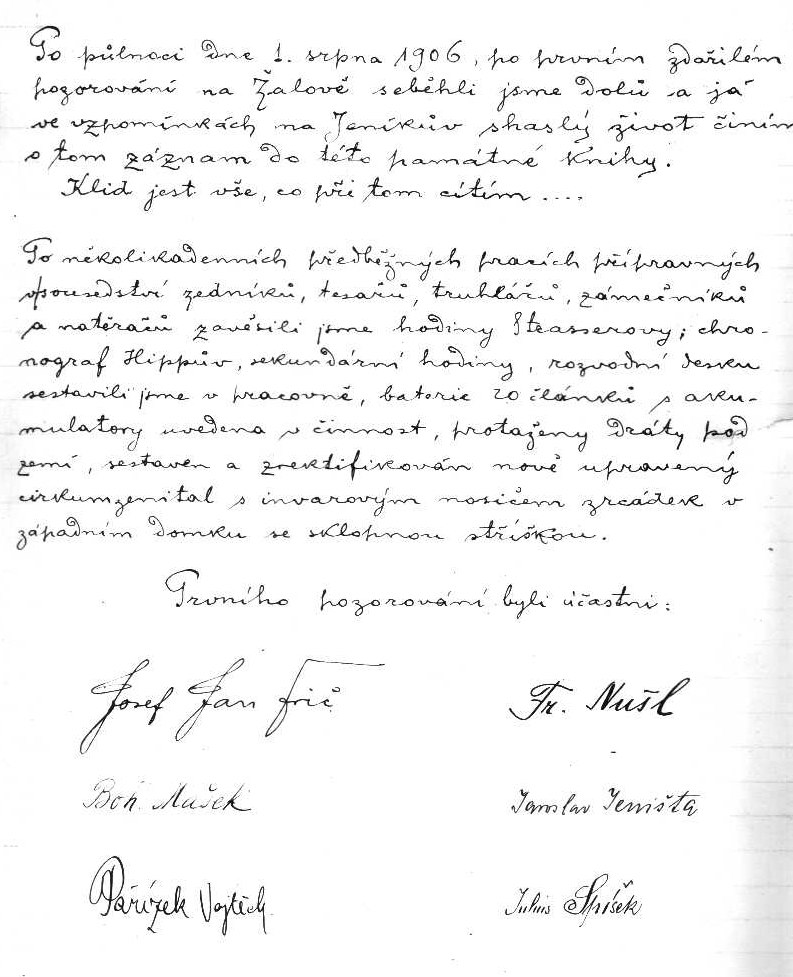 Po půlnoci dne 1. srpna 1906, po prvním zdařilém
pozorování na Žalově seběhli jsme dolů a já
ve vzpomínkách na Jeníkův shaslý život činím
o tom záznam do této památné knihy.
Klid jest vše, co při tom cítím ....
Po několikadenních předběžných pracích přípravných
zedníků, tesařů, truhlářů, zámečníků
a natěračů zavěsili jsme hodiny Strasserovy; chro-
nograf Hippův, sekundární hodiny, rozvodní desku
sestavili jsme v pracovně, baterie 20 článků s aku-
mulatory uvedena v činnost, protaženy dráty pod
zemí, sestaven a zrektifikován nově upravený
cirkumzenital s invarovým nosičem zrcádek v
západním domku se sklopnou stříškou.
Prvního pozorování byli účastni:
Josef Jan Frič
Fr. Nušl
Boh. Mašek
Jaroslav Jeništa
Pařízek Vojtěch
Julius Spíšek